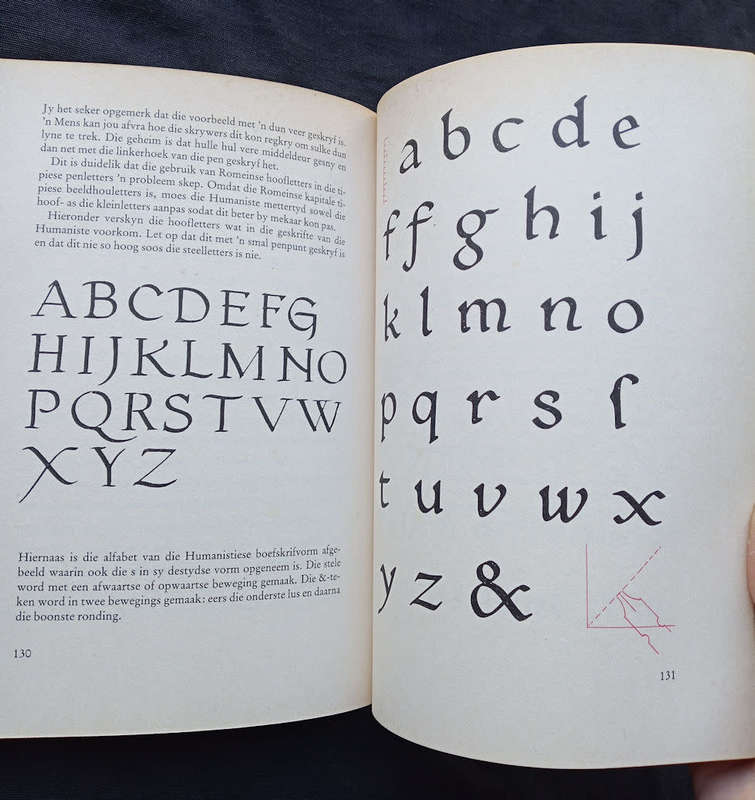 Jy het seker opgemerk dat die voorbeeld met 'n dun veer geskryf is.
'n Mens kan jou afvra hoe die skrywers dit kon regkry om sulke dun
lyne te trek. Die geheim is dat hulle hul vere middeldeur gesny en
dan net met die linkerhoek van die pen geskryf het.
Dit is duidelik dat die gebruik van Romeinse hoofletters in die ti-
piese penletters 'n probleem skep. Omdat die Romeinse kapitale ti-
piese beeldhouletters is, moes die Humaniste mettertyd sowel die
hoof- as die kleinletters aanpas sodat dit beter by mekaar kon pas.
Hieronder verskyn die hoofletters wat in die geskrifte van die
Humaniste voorkom. Let op dat dit met 'n smal penpunt geskryf is
en dat dit nie so hoog soos die steelletters is nie.
ABCDEFG
HIJKLMNO
PQRSTVW
XYZ
Hiernaas is die alfabet van die Humanistiese boefskrifvorm afge-
beeld waarin ook die s in sy destydse vorm opgeneem is. Die stele
word met een afwaartse of opwaartse beweging gemaak. Die &-te-
ken word in twee bewegings gemaak: eers die onderste lus en daarna
die boonste ronding.
130
a b c d e
f f g h i j
k l m n o
p q r s ſ
t u v w x
y z &
131